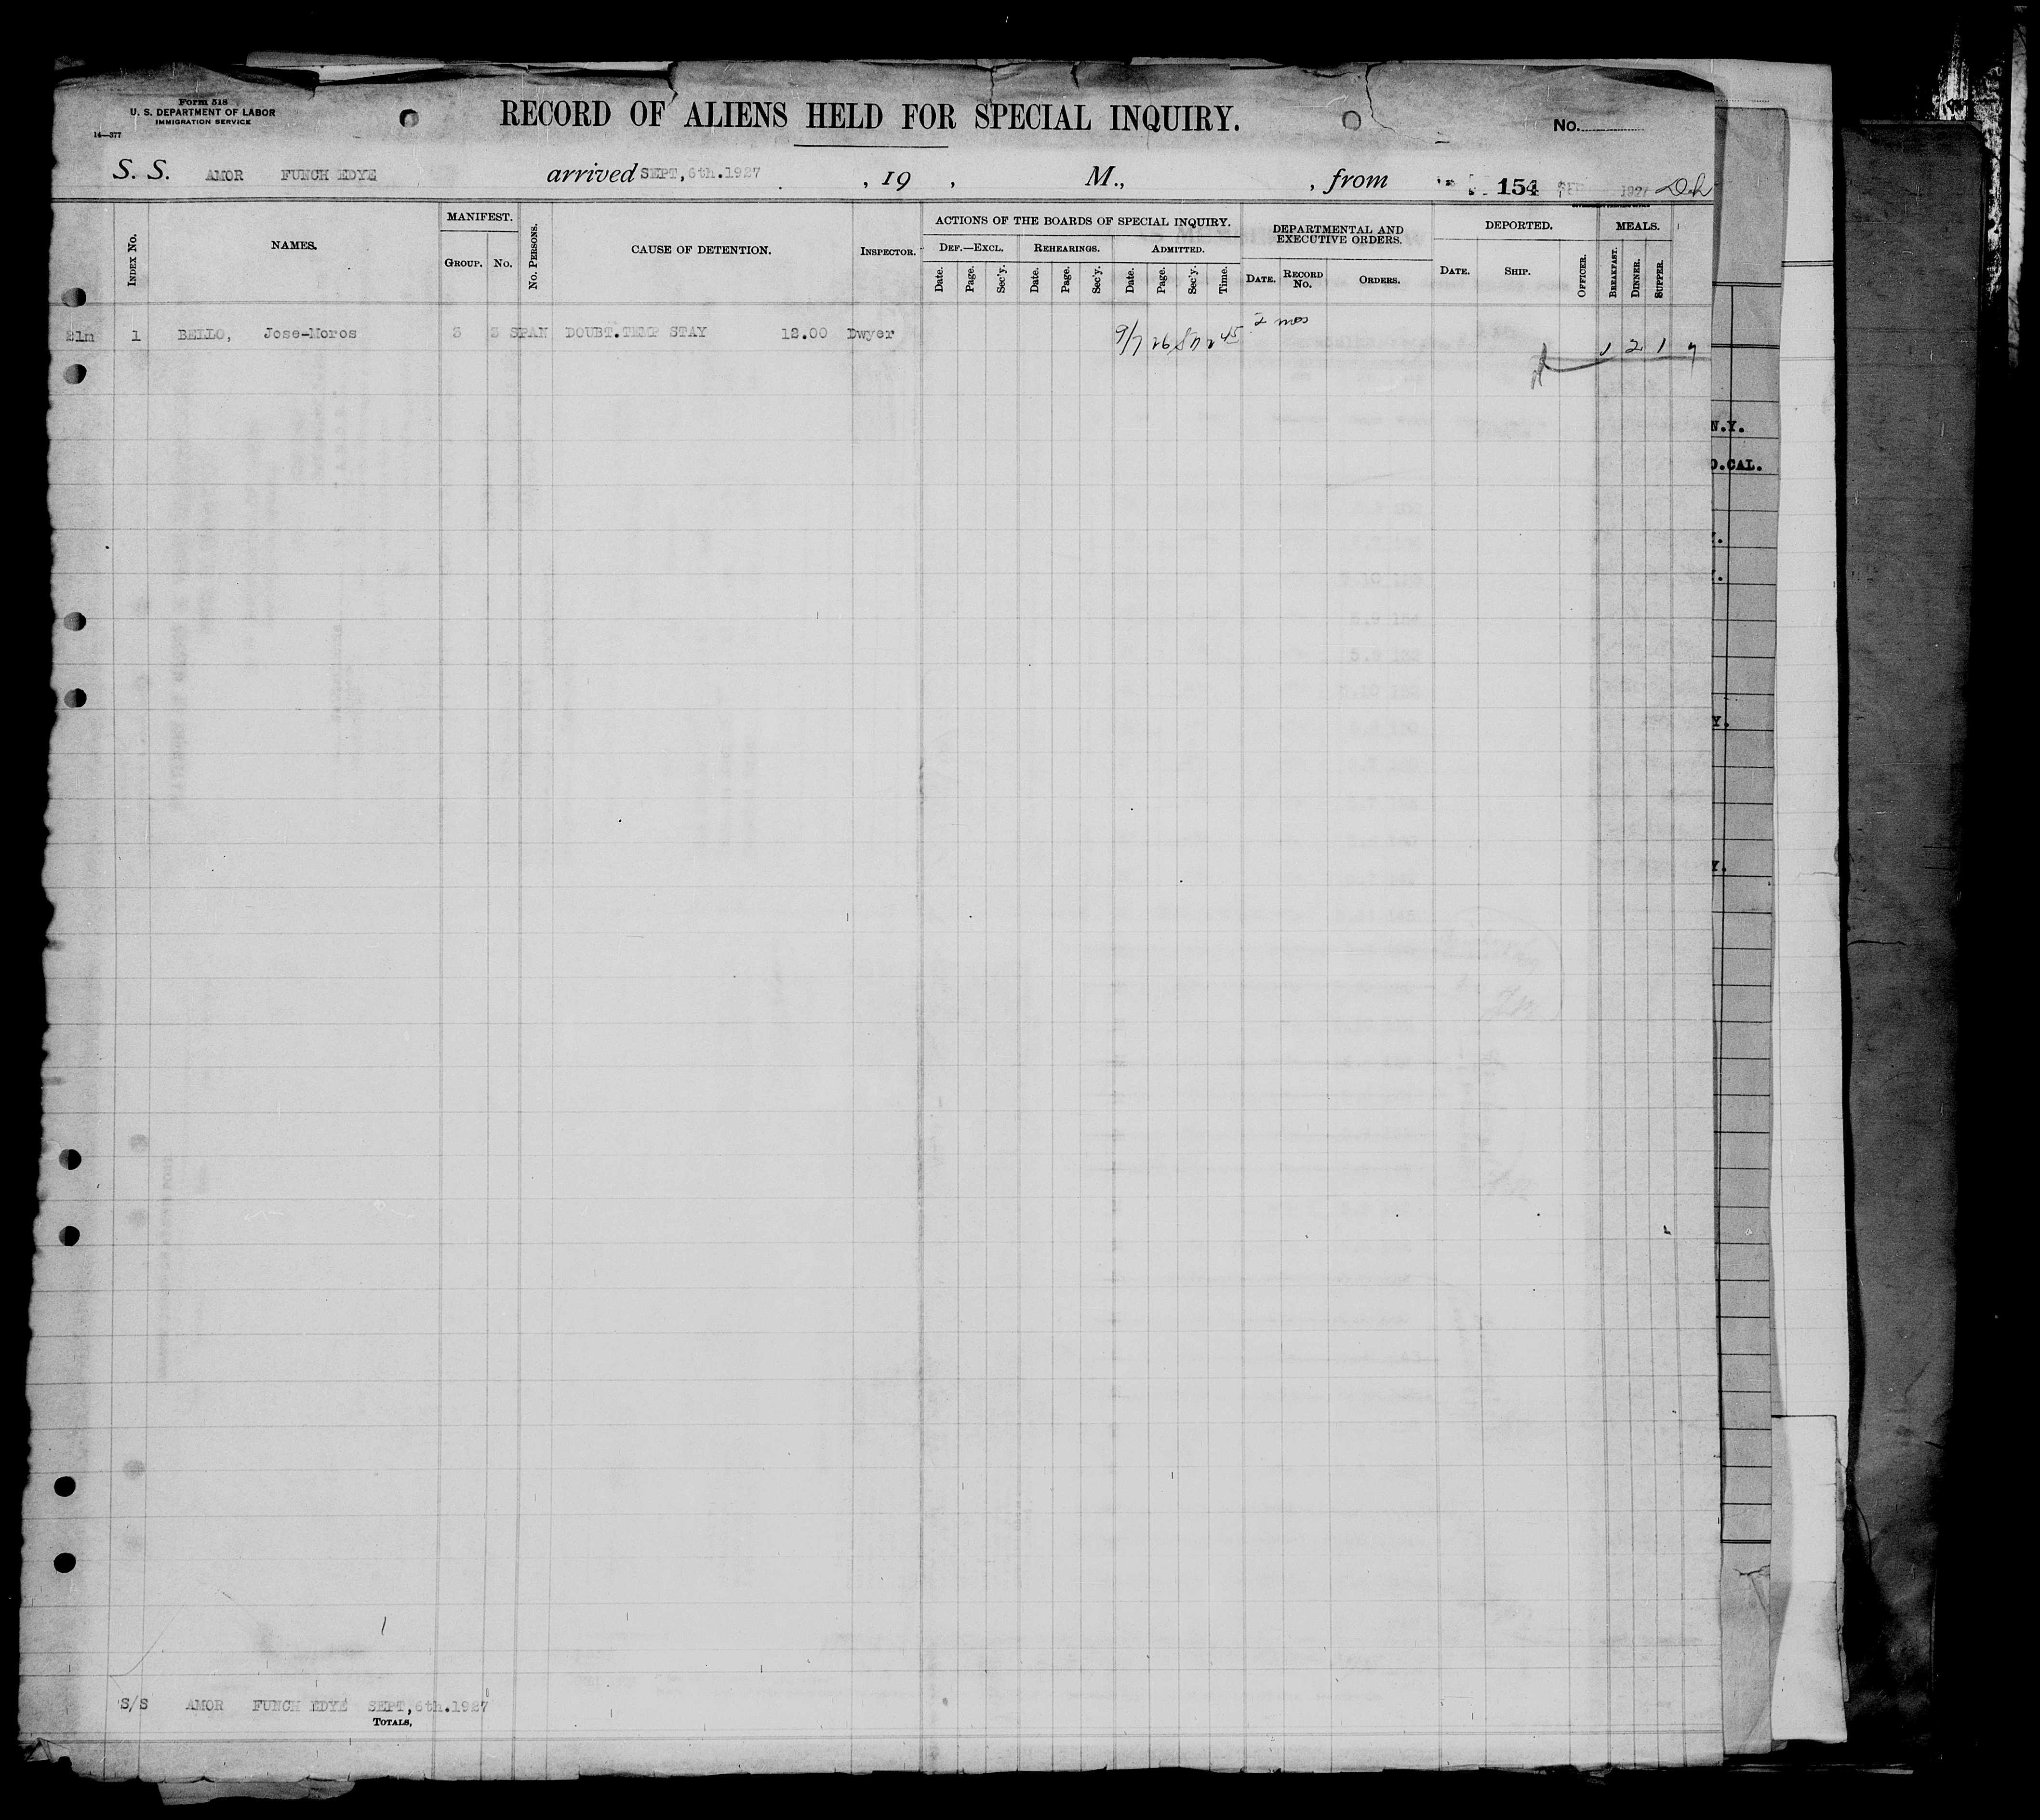 Form 518
U. S. DEPARTMENT OF LABOR
IMMIGRATION SERVICE
14—377
RECORD OF ALIENS HELD FOR SPECIAL INQUIRY.
No.
S. S. AMOR FUNCH EDYE arrived SEPT, 6th.1927 , 19 , M., , from 154 1927
INDEX No. NAMES. MANIFEST. GROUP. No. No. PERSONS. CAUSE OF DETENTION. INSPECTOR.
ACTIONS OF THE BOARDS OF SPECIAL INQUIRY.
DEF.—EXCL. REHEARINGS. ADMITTED.
Date. Page. Sec'y. Date. Page. Sec'y. Date. Page. Sec'y. Time.
DEPARTMENTAL AND EXECUTIVE ORDERS.
DATE. RECORD No. ORDERS.
DEPORTED.
DATE. SHIP. OFFICER.
MEALS.
BREAKFAST. DINNER. SUPPER.
21m 1 BELLO, Jose-Moros 3 3 SPAN DOUBT.TEMP STAY 12.00 Dwyer 9/7 2 mos 1 2 1
N.Y.
O.CAL.
Y.
Y.
S/S AMOR FUNCH EDYE SEPT,6th.1927
TOTALS,